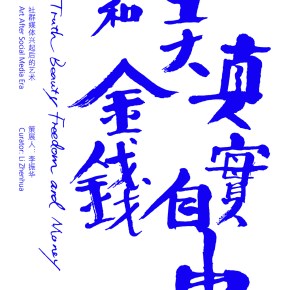 真實
美
自由
和
金錢
Truth Beauty Freedom and Money
社群媒体兴起后的艺术
Art After Social Media Era
策展人：李振华
Curator: Li Zhenhua